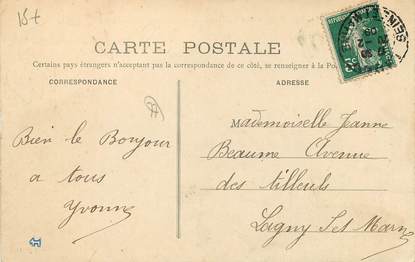 15+
CARTE POSTALE
Certains pays étrangers n'acceptant pas la correspondance de ce côté, se renseigner à la Po
CORRESPONDANCE
ADRESSE
Bien le Bonjour
a tous
Yvonne
Mademoiselle Jeanne
Beaume Avenue
des tilleuls
Lagny Set Marne